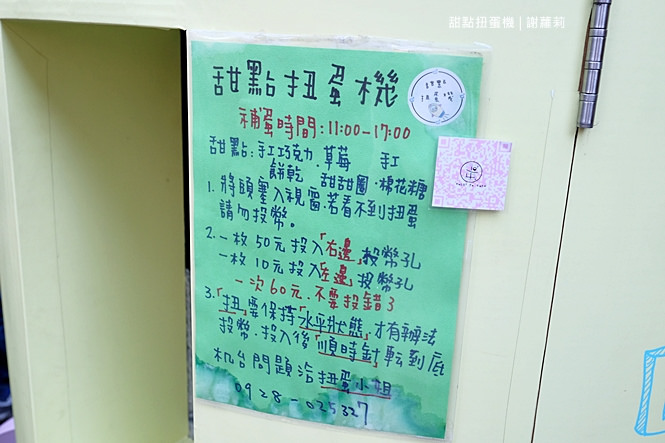 甜點扭蛋機 | 謝蘿莉
甜點扭蛋機
補蛋時間:11:00-17:00
甜點:手工巧克力.草莓 手工
餅乾 甜甜圈.棉花糖
1. 將頭塞入視窗.若看不到扭蛋
請勿投幣。
2. 一枚50元投入「右邊」投幣孔
一枚10元投入「左邊」投幣孔
一次60元.不要投錯了
3.「扭」要保持「水平狀態」.才有辦法
投幣.投入後「順時針」転到底
机台問題洽扭蛋小姐
0928-025327